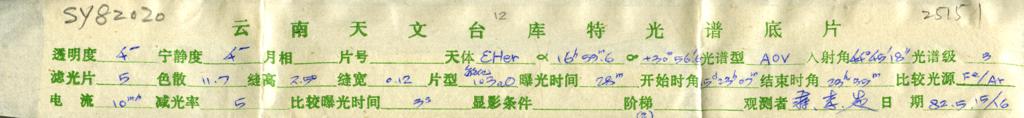 SY82020 12 25151
云南天文台库特光谱底片
透明度 4 宁静度 4 月相 片号 天体 εHer α 16h59m.6 δ +30°56′ 光谱型 A0V 入射角 44°45′18″ 光谱级 3
滤光片 5 色散 11.7 缝高 缝宽 0.12 片型 103aO 曝光时间 28m 开始时角 23h07m 结束时角 23h35m 比较光源 Fe/Ar
电流 10mA 减光率 5 比较曝光时间 3s 显影条件 阶梯 观测者 日期 82.5.15/16
(2)